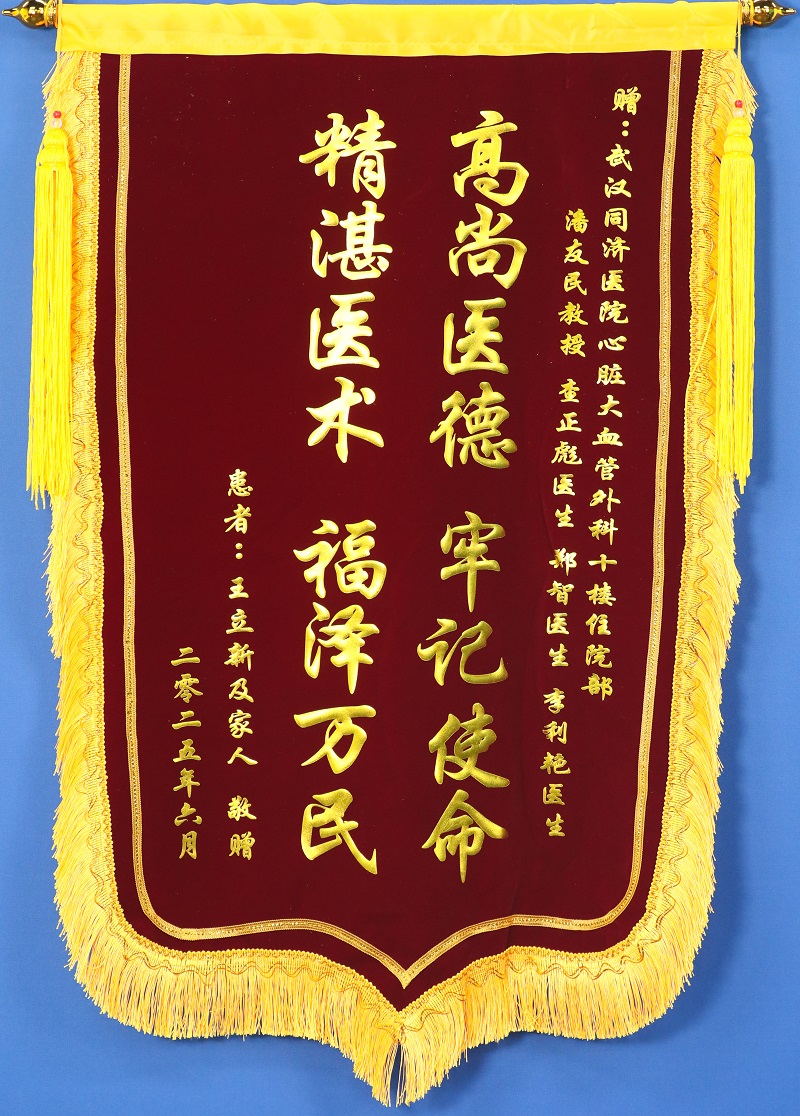 赠：武汉同济医院心脏大血管外科十楼住院部
潘友民教授 查正彪医生 郑智医生 李利艳医生
高尚医德 牢记使命
精湛医术 福泽万民
患者：王立新及家人 敬赠
二零二五年六月